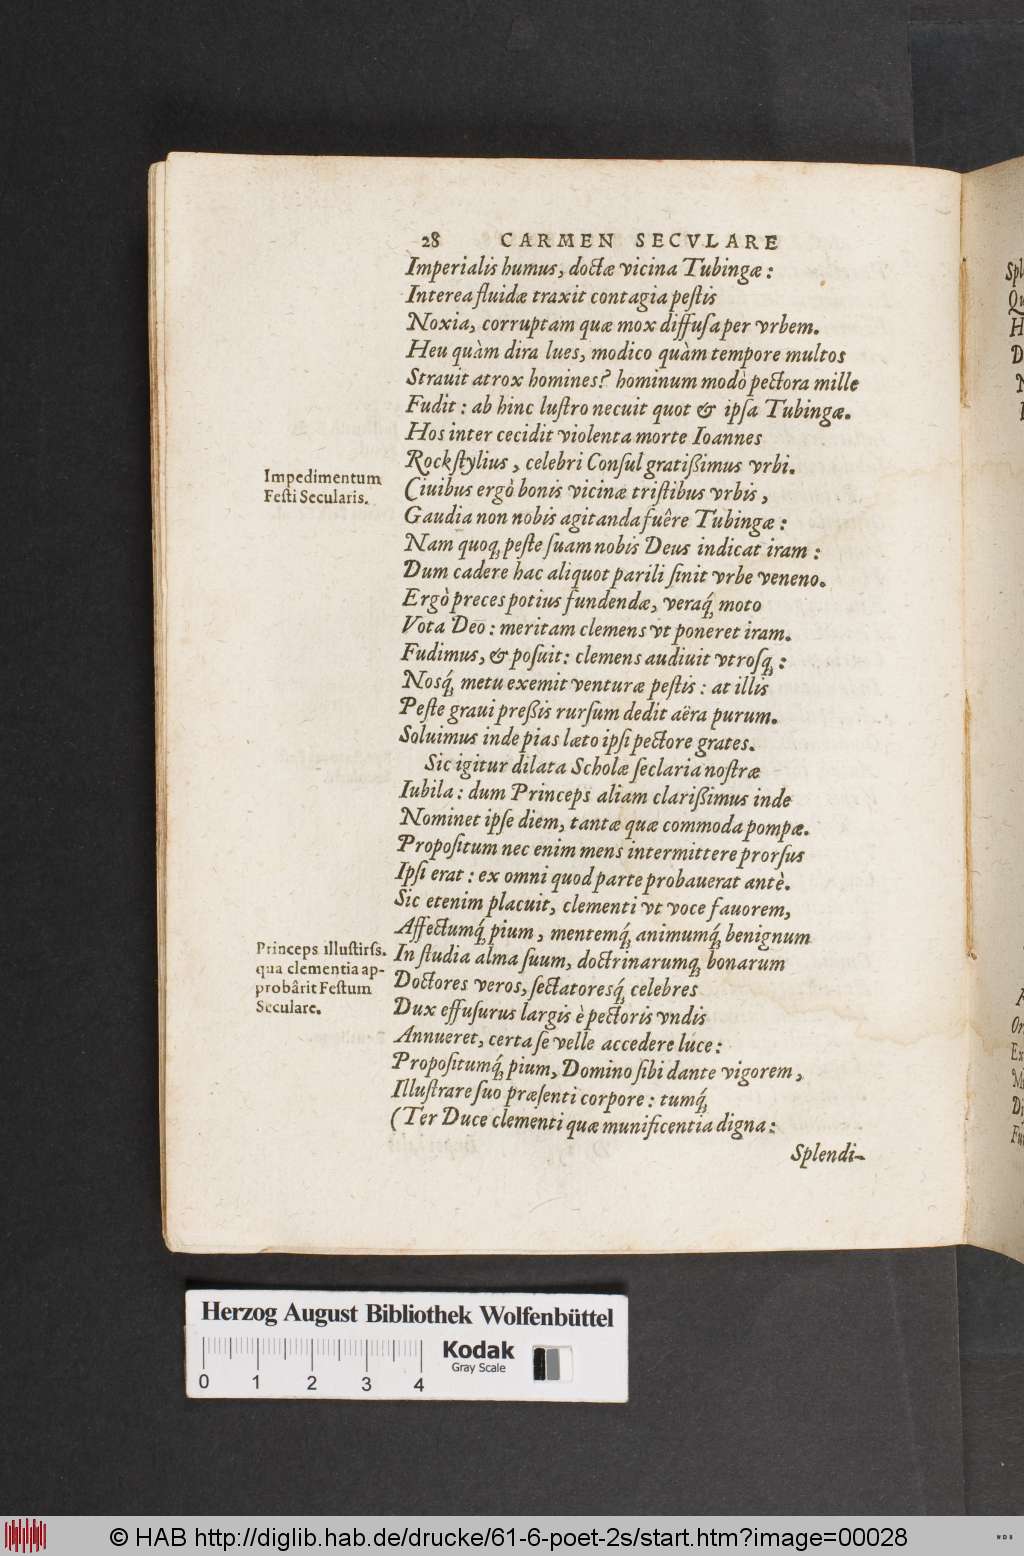 28 CARMEN SECVLARE
Imperialis humus, doctæ vicina Tubingæ:
Interea fluidæ traxit contagia peſtis
Noxia, corruptam quæ mox diffuſa per vrbem.
Heu quàm dira lues, modico quàm tempore multos
Strauit atrox homines? hominum modò pectora mille
Fudit: ab hinc luſtro necuit quot & ipſa Tubingæ.
Hos inter cecidit violenta morte Ioannes
Rockſtylius, celebri Conſul gratißimus vrbi.
Impedimentum
Feſti Secularis.
Ciuibus ergò bonis vicinæ triſtibus vrbis,
Gaudia non nobis agitanda fuêre Tubingæ:
Nam quoq; peſte ſuam nobis Deus indicat iram:
Dum cadere hac aliquot parili ſinit vrbe veneno.
Ergò preces potius fundendæ, veraq́; moto
Vota Deo: meritam clemens vt poneret iram.
Fudimus, & poſuit: clemens audiuit vtroſq;:
Noſq́; metu exemit venturæ peſtis: at illis
Peſte graui preßis rurſum dedit aëra purum.
Soluimus inde pias læto ipſi pectore grates.
Sic igitur dilata Scholæ ſeclaria noſtræ
Iubila: dum Princeps aliam clarißimus inde
Nominet ipſe diem, tantæ quæ commoda pompæ.
Propoſitum nec enim mens intermittere prorſus
Ipſi erat: ex omni quod parte probauerat antè.
Sic etenim placuit, clementi vt voce fauorem,
Affectumq́; pium, mentemq́; animumq́; benignum
Princeps illuſtirſs.
qua clementia ap-
probârit Feſtum
Seculare.
In ſtudia alma ſuum, doctrinarumq; bonarum
Doctores veros, ſectatoresq́; celebres
Dux effuſurus largis è pectoris vndis
Annueret, certa ſe velle accedere luce:
Propoſitumq́; pium, Domino ſibi dante vigorem,
Illuſtrare ſuo præſenti corpore: tumq́;
(Ter Duce clementi quæ munificentia digna:
Splendi-
Herzog August Bibliothek Wolfenbüttel
Kodak
Gray Scale
0 1 2 3 4
© HAB http://diglib.hab.de/drucke/61-6-poet-2s/start.htm?image=00028